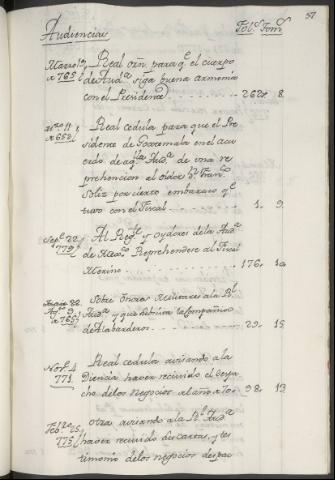 57
Audiencias
Fol.s Tom.s
Marzo 19, Real orn. para q.e el cuerpo
de 765 de Aud.a siga buena armonia
con el Presidente - - 262. 8
Real cedula para que el Pre
a 652, sidente de Goatemala en el acu
erdo de aq.lla Aud.a de una re
prehencion al oidor D.n Fran.co
Soliz por cierto embarazo q.e
tuvo con el Fiscal - - 1. 9
Sep.e 22, Al Reg.te y oydores de la Aud.a
779 de Reprehendese al Fiscal
Merino - - - 176. 10
Sobre Onores Militares a la R.l
765 Aud.a y que la Compañia
de Alabarderos - - 29. 15
Nov.e 4 Real cedula avisando a la
771. Diencia haver recivido el Despa
cho de los Negocios al año de 98. 13
Feb.o 25, otra avisando a la R.l Aud.a
775, haver recivido dos cartas, y tes
timonio de los negocios despac